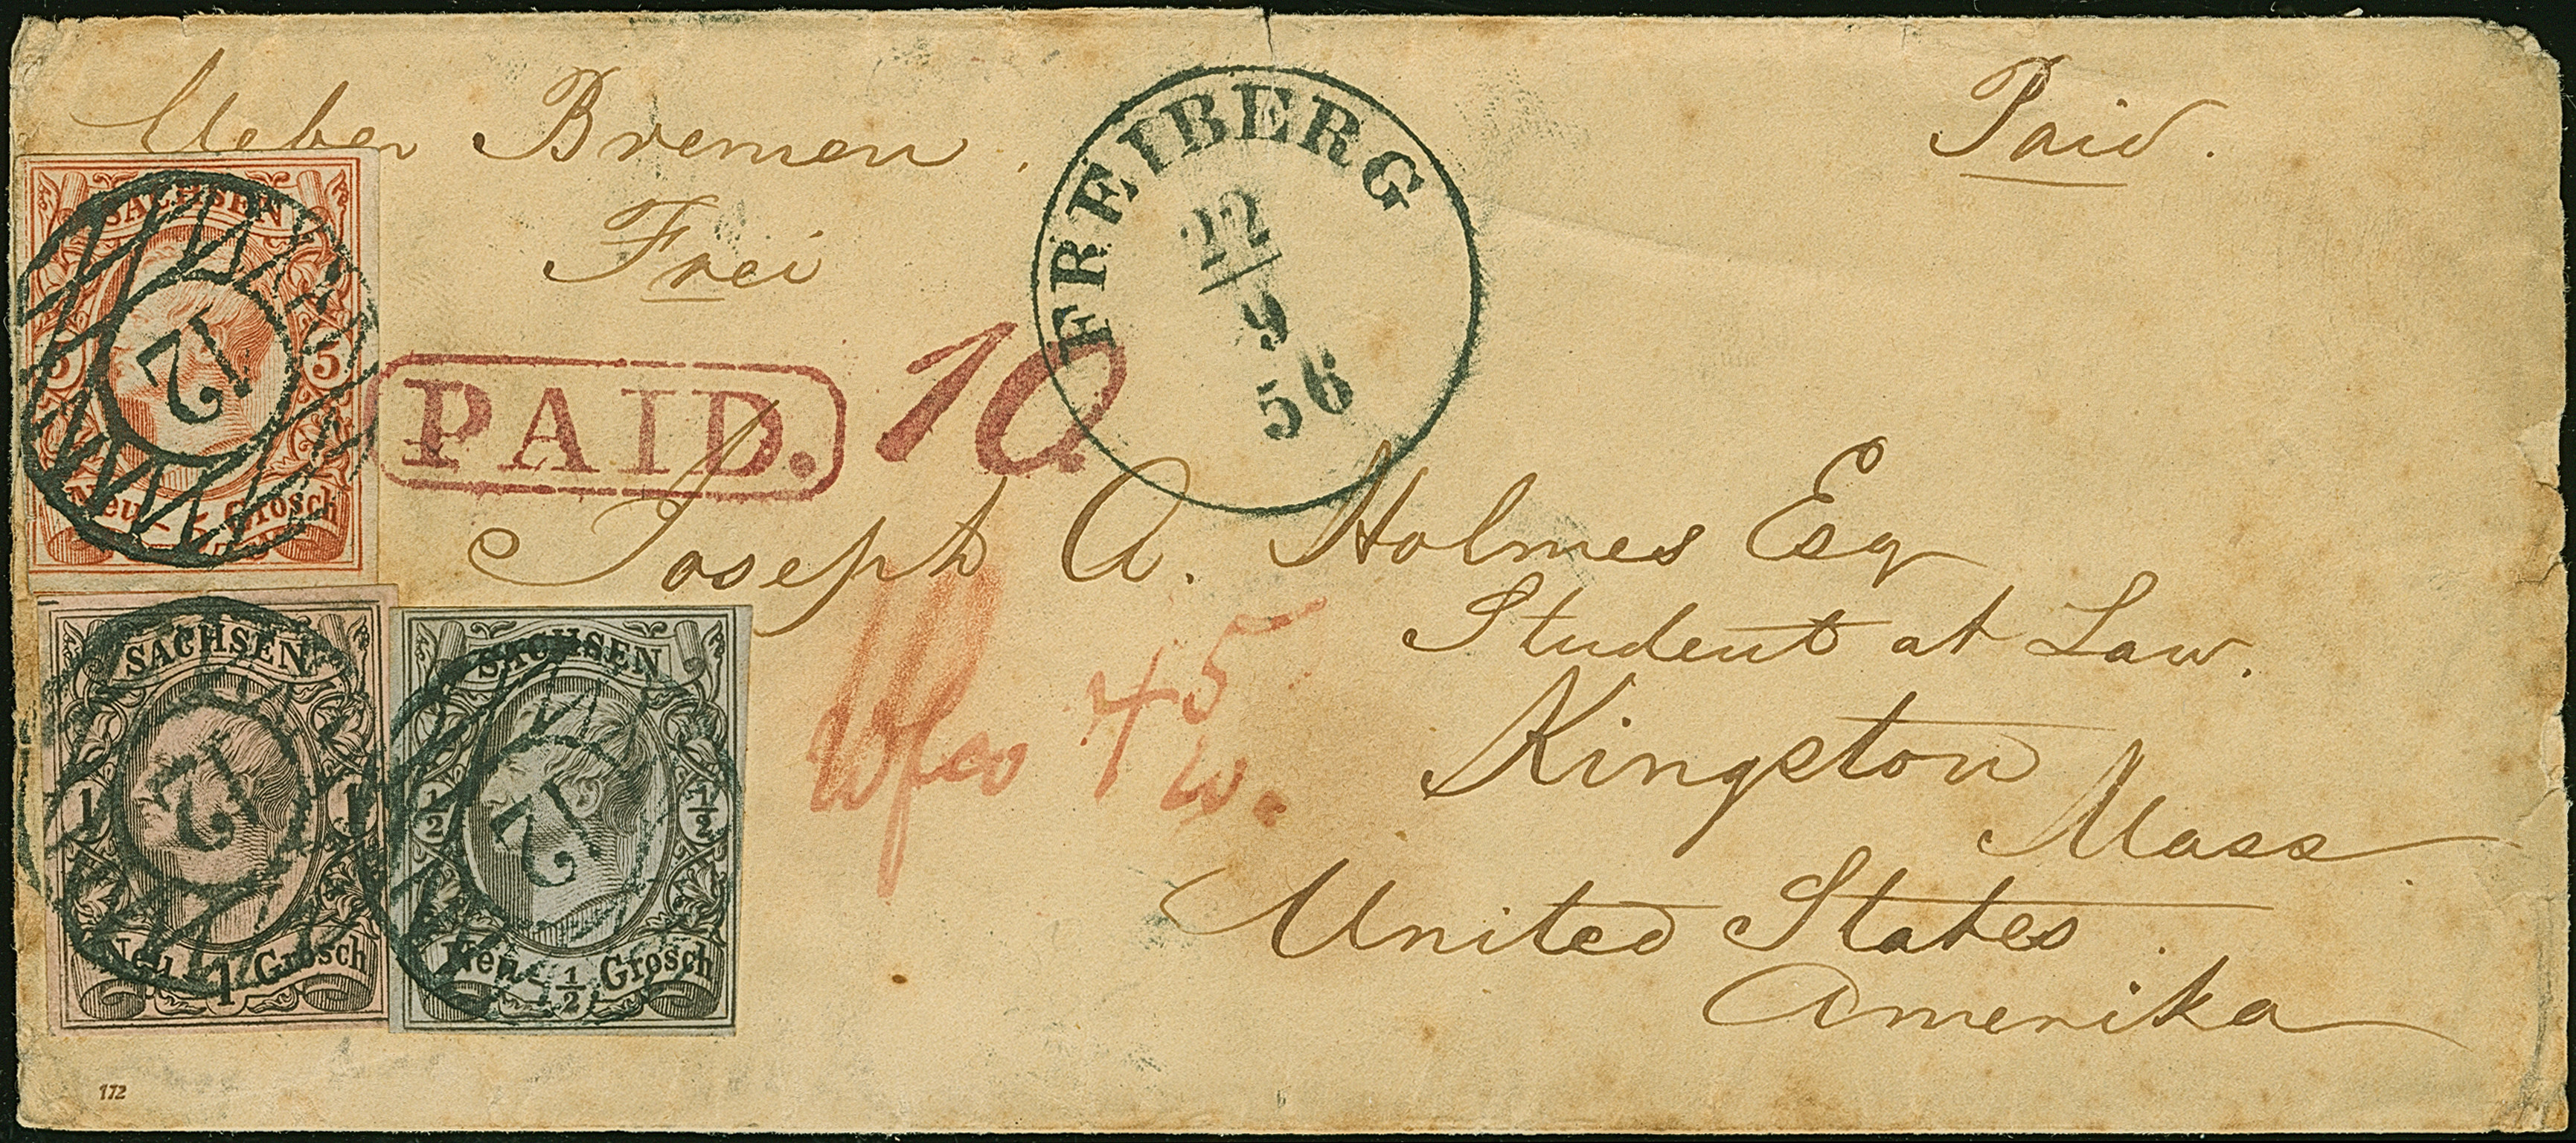 Ueber Bremen.
Paid.
Frei
FREIBERG
22
9
56
PAID. 10
Joseph A. Holmes Esq
Student at Law.
Kingston
Mass
United States
Amerika
SACHSEN
12
5 5
Neu- 5 Grosch
SACHSEN
12
1 1
Neu- 1 Grosch
SACHSEN
12
1/2 1/2
Neu- 1/2 Grosch
5
172